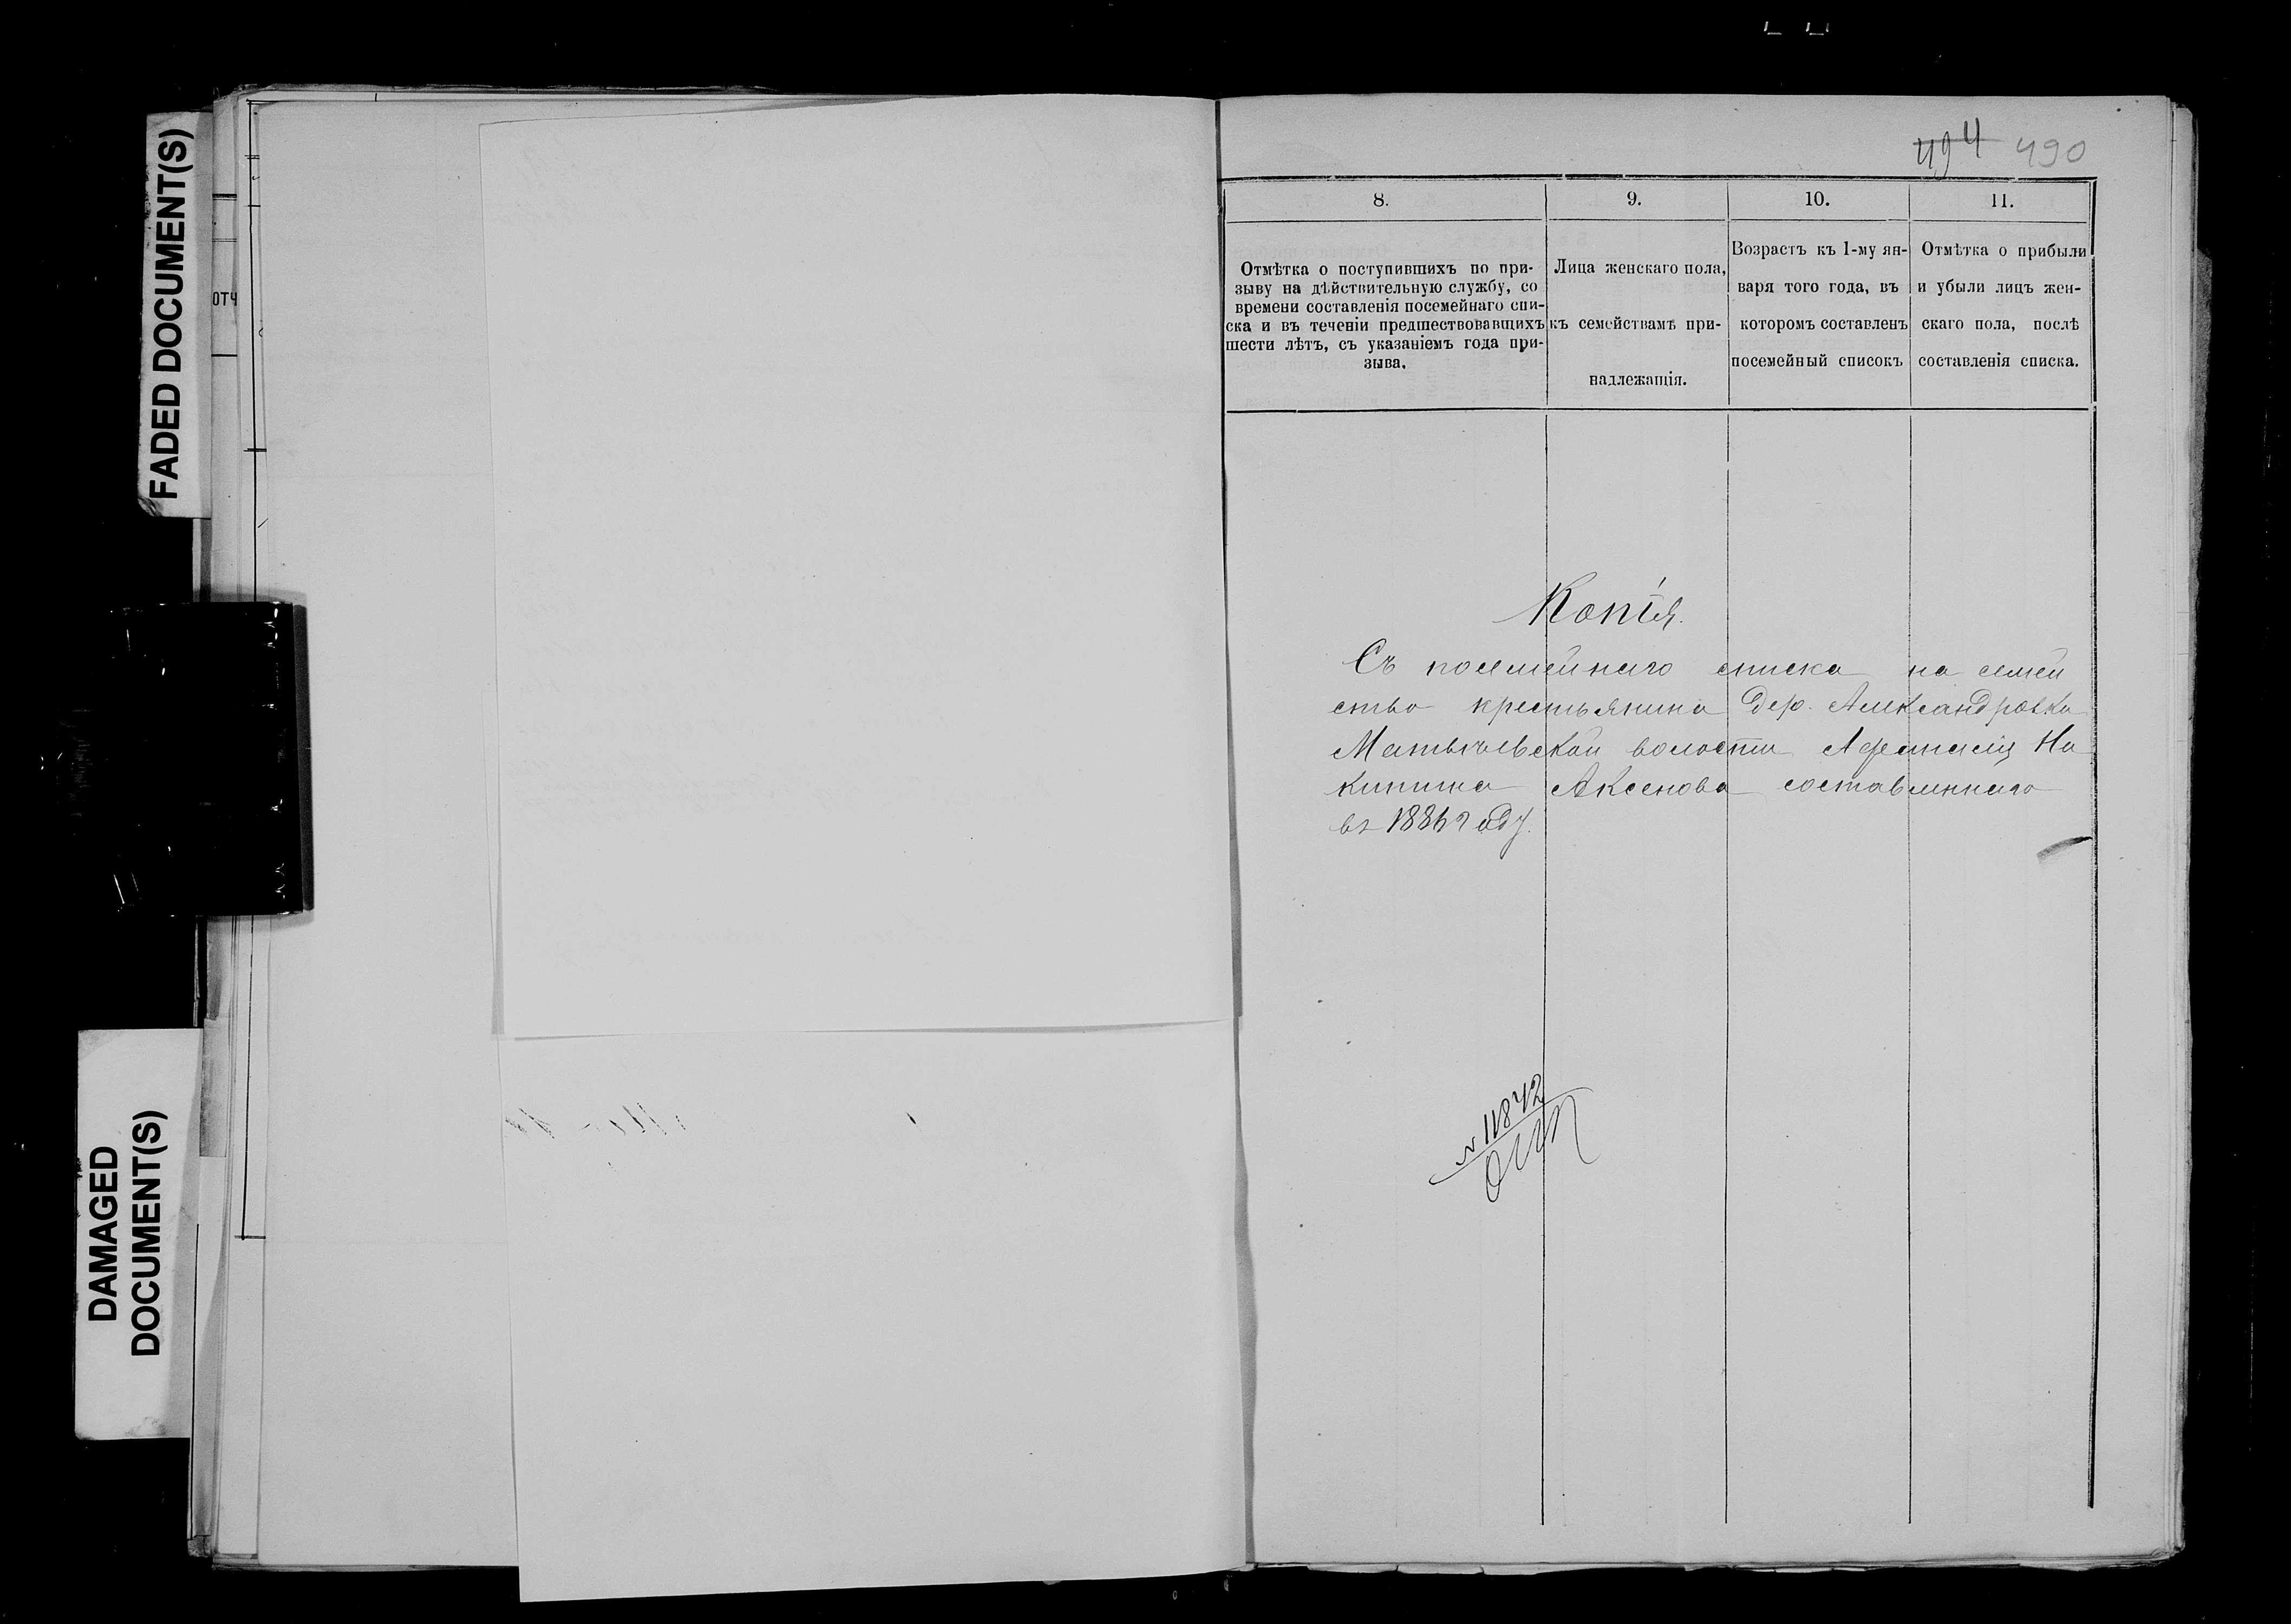 FADED DOCUMENT(S)
DAMAGED
DOCUMENT(S)
отч
494 490
8.
Отмѣтка о поступившихъ по при-
зыву на дѣйствительную службу, со
времени составленія посемейнаго спи-
ска и въ теченіи предшествовавшихъ
шести лѣтъ, съ указаніемъ года при-
зыва.
9.
Лица женскаго пола,
къ семействамъ при-
надлежащія.
10.
Возрастъ къ 1-му ян-
варя того года, въ
которомъ составленъ
посемейный списокъ
11.
Отмѣтка о прибыли
и убыли лицъ жен-
скаго пола, послѣ
составленія списка.
Копія.
Съ посемейнаго списка на семей
ство крестьянина дер. Александровки
волости На
Аксенова составленнаго
въ 1886 году.
№ 11842